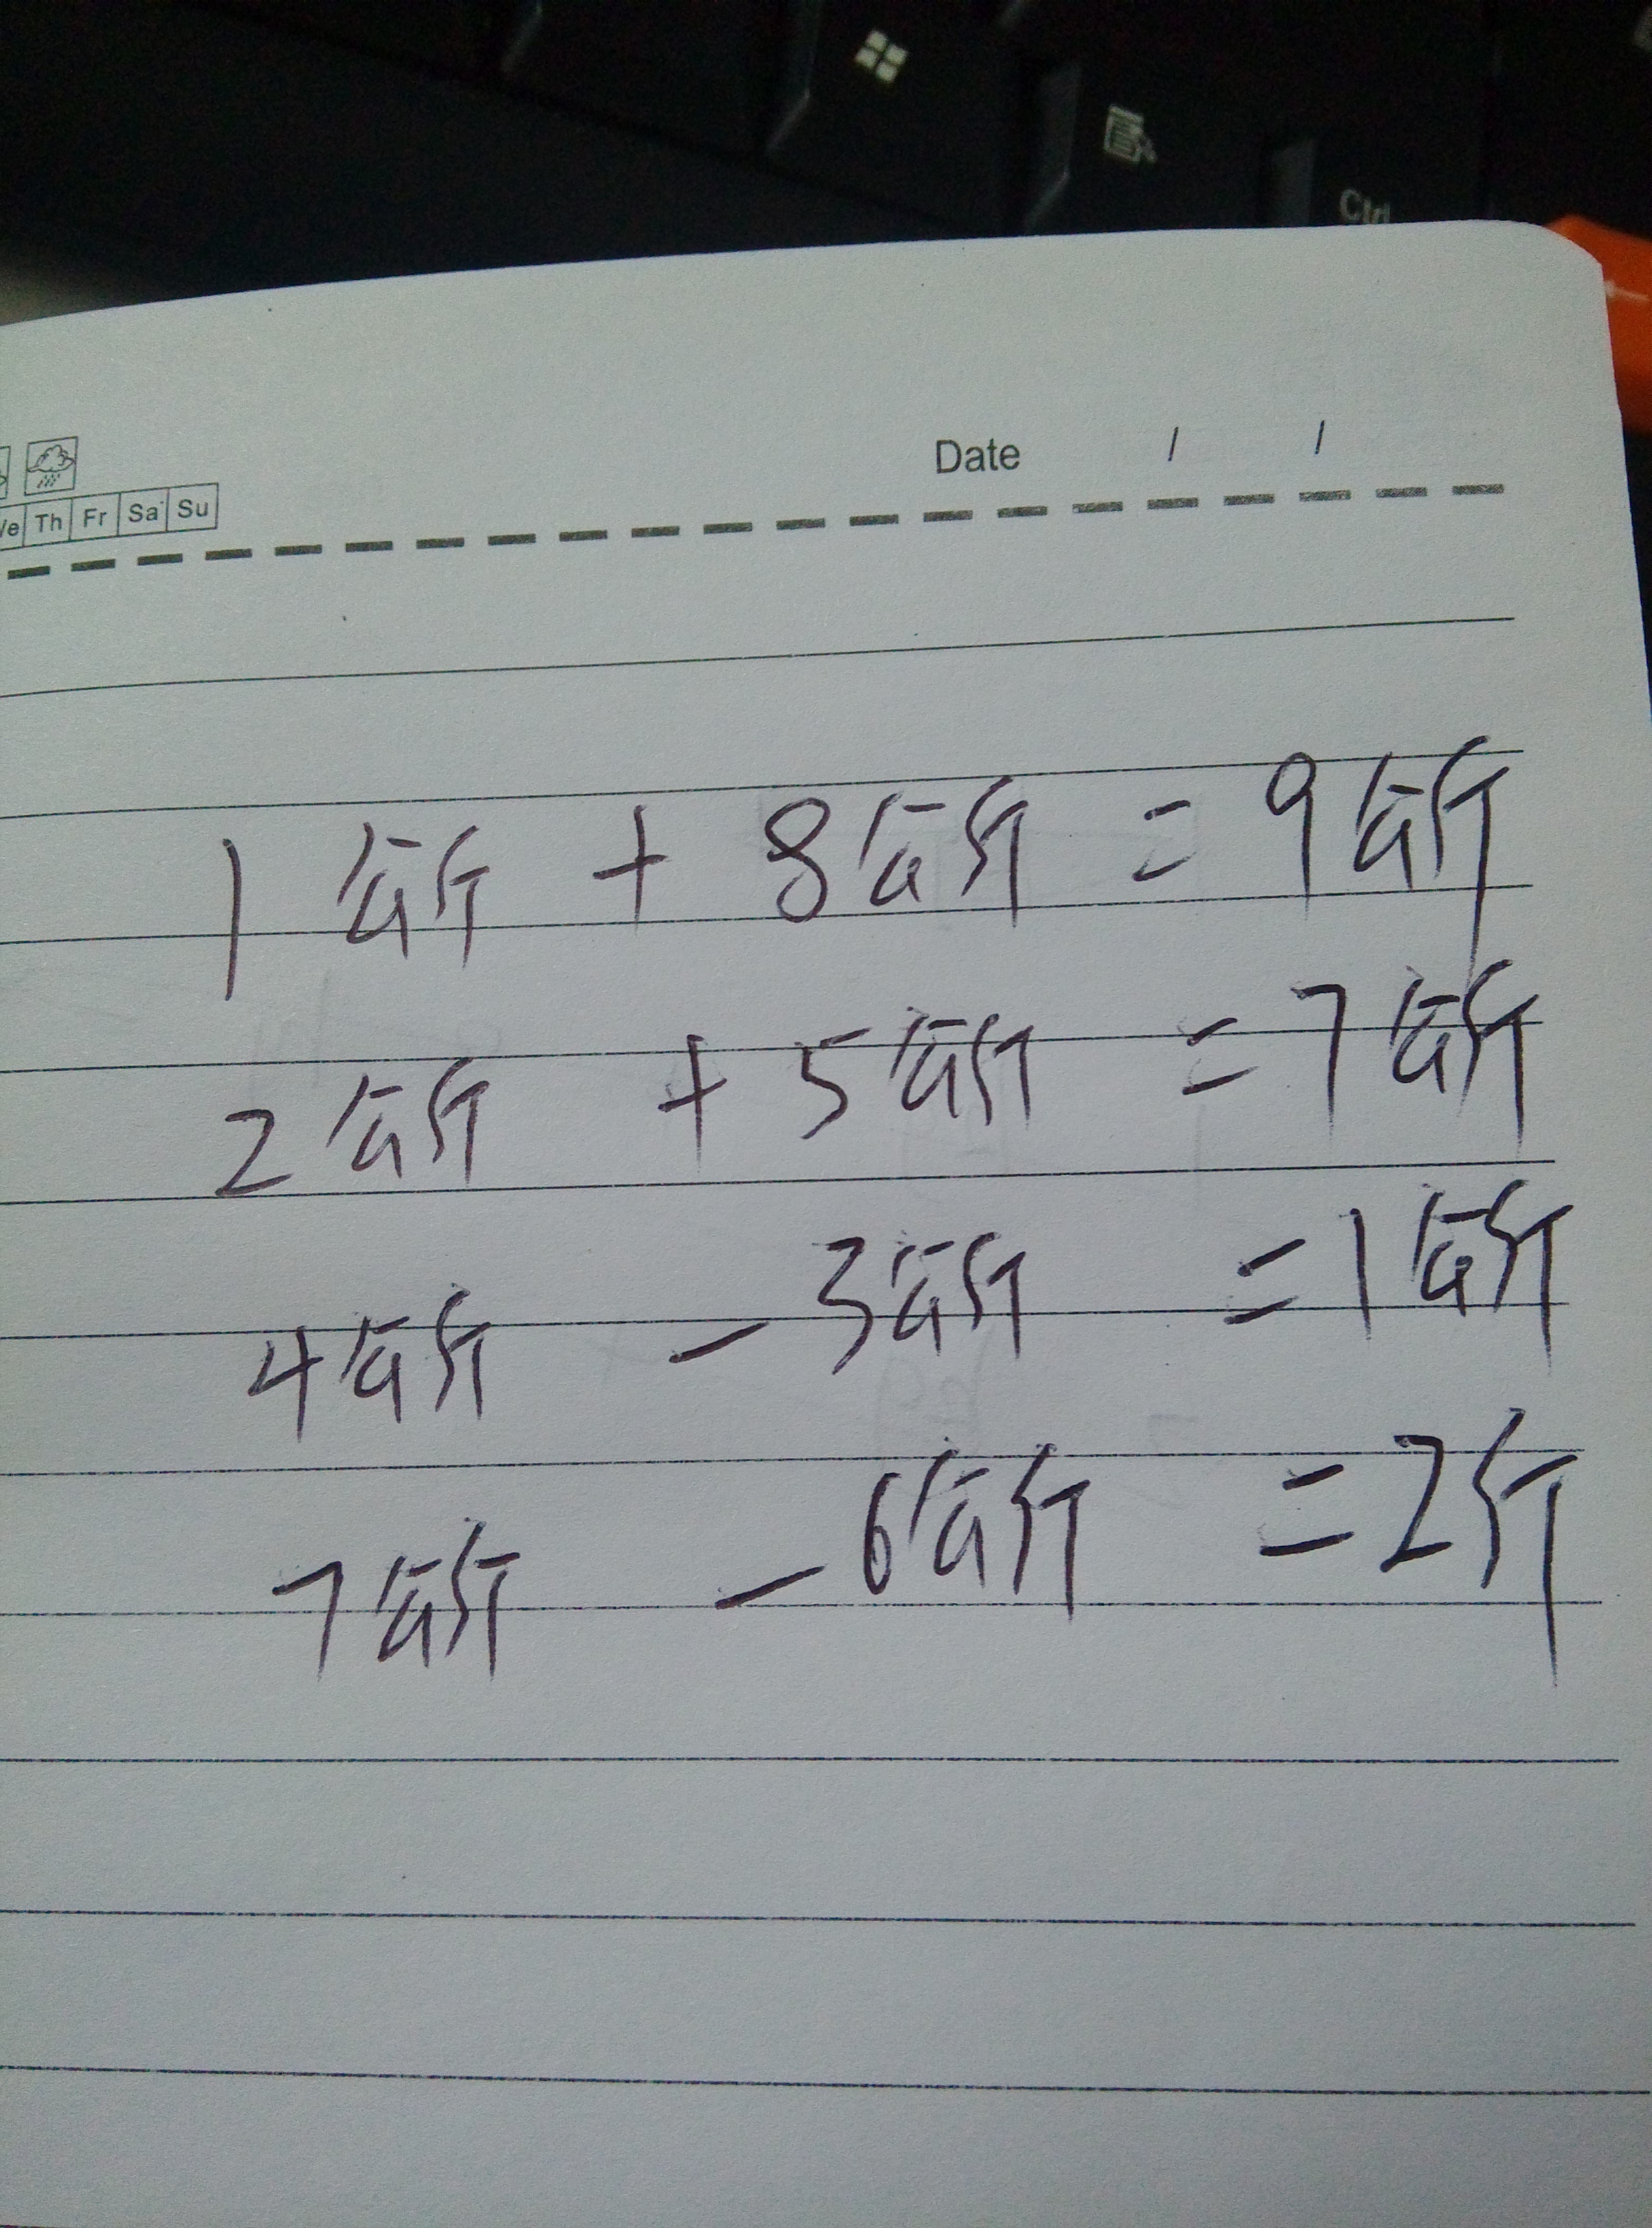 Ctrl
Date / /
Th Fr Sa Su
1公斤 + 8公斤 = 9公斤
2公斤 + 5公斤 = 7公斤
4公斤 - 3公斤 = 1公斤
7公斤 - 6公斤 = 2斤